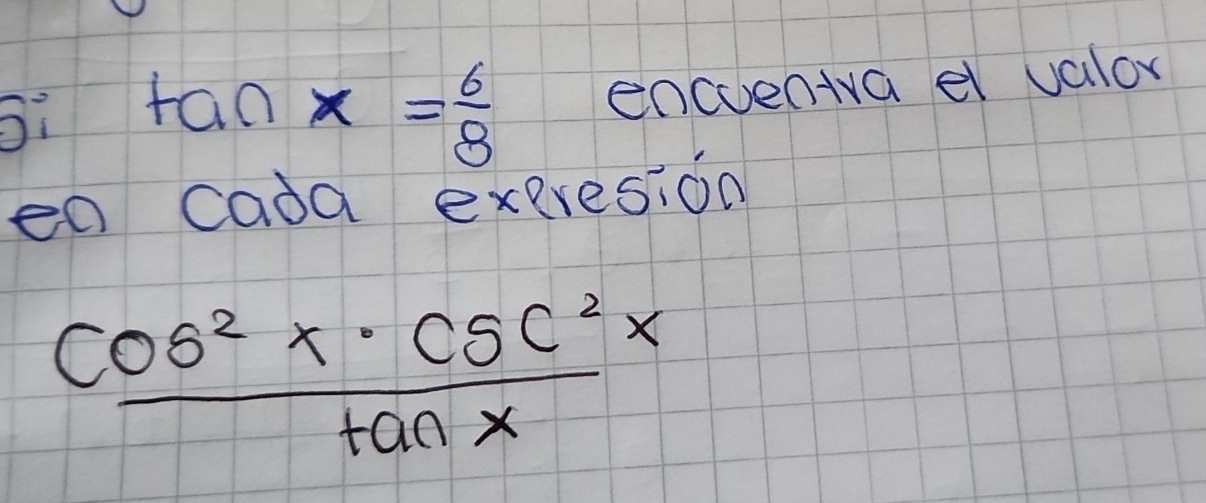 Si tan x = 6/8 encuentra el valor
en cada expresión
Cos² x · CSC² x
tan x